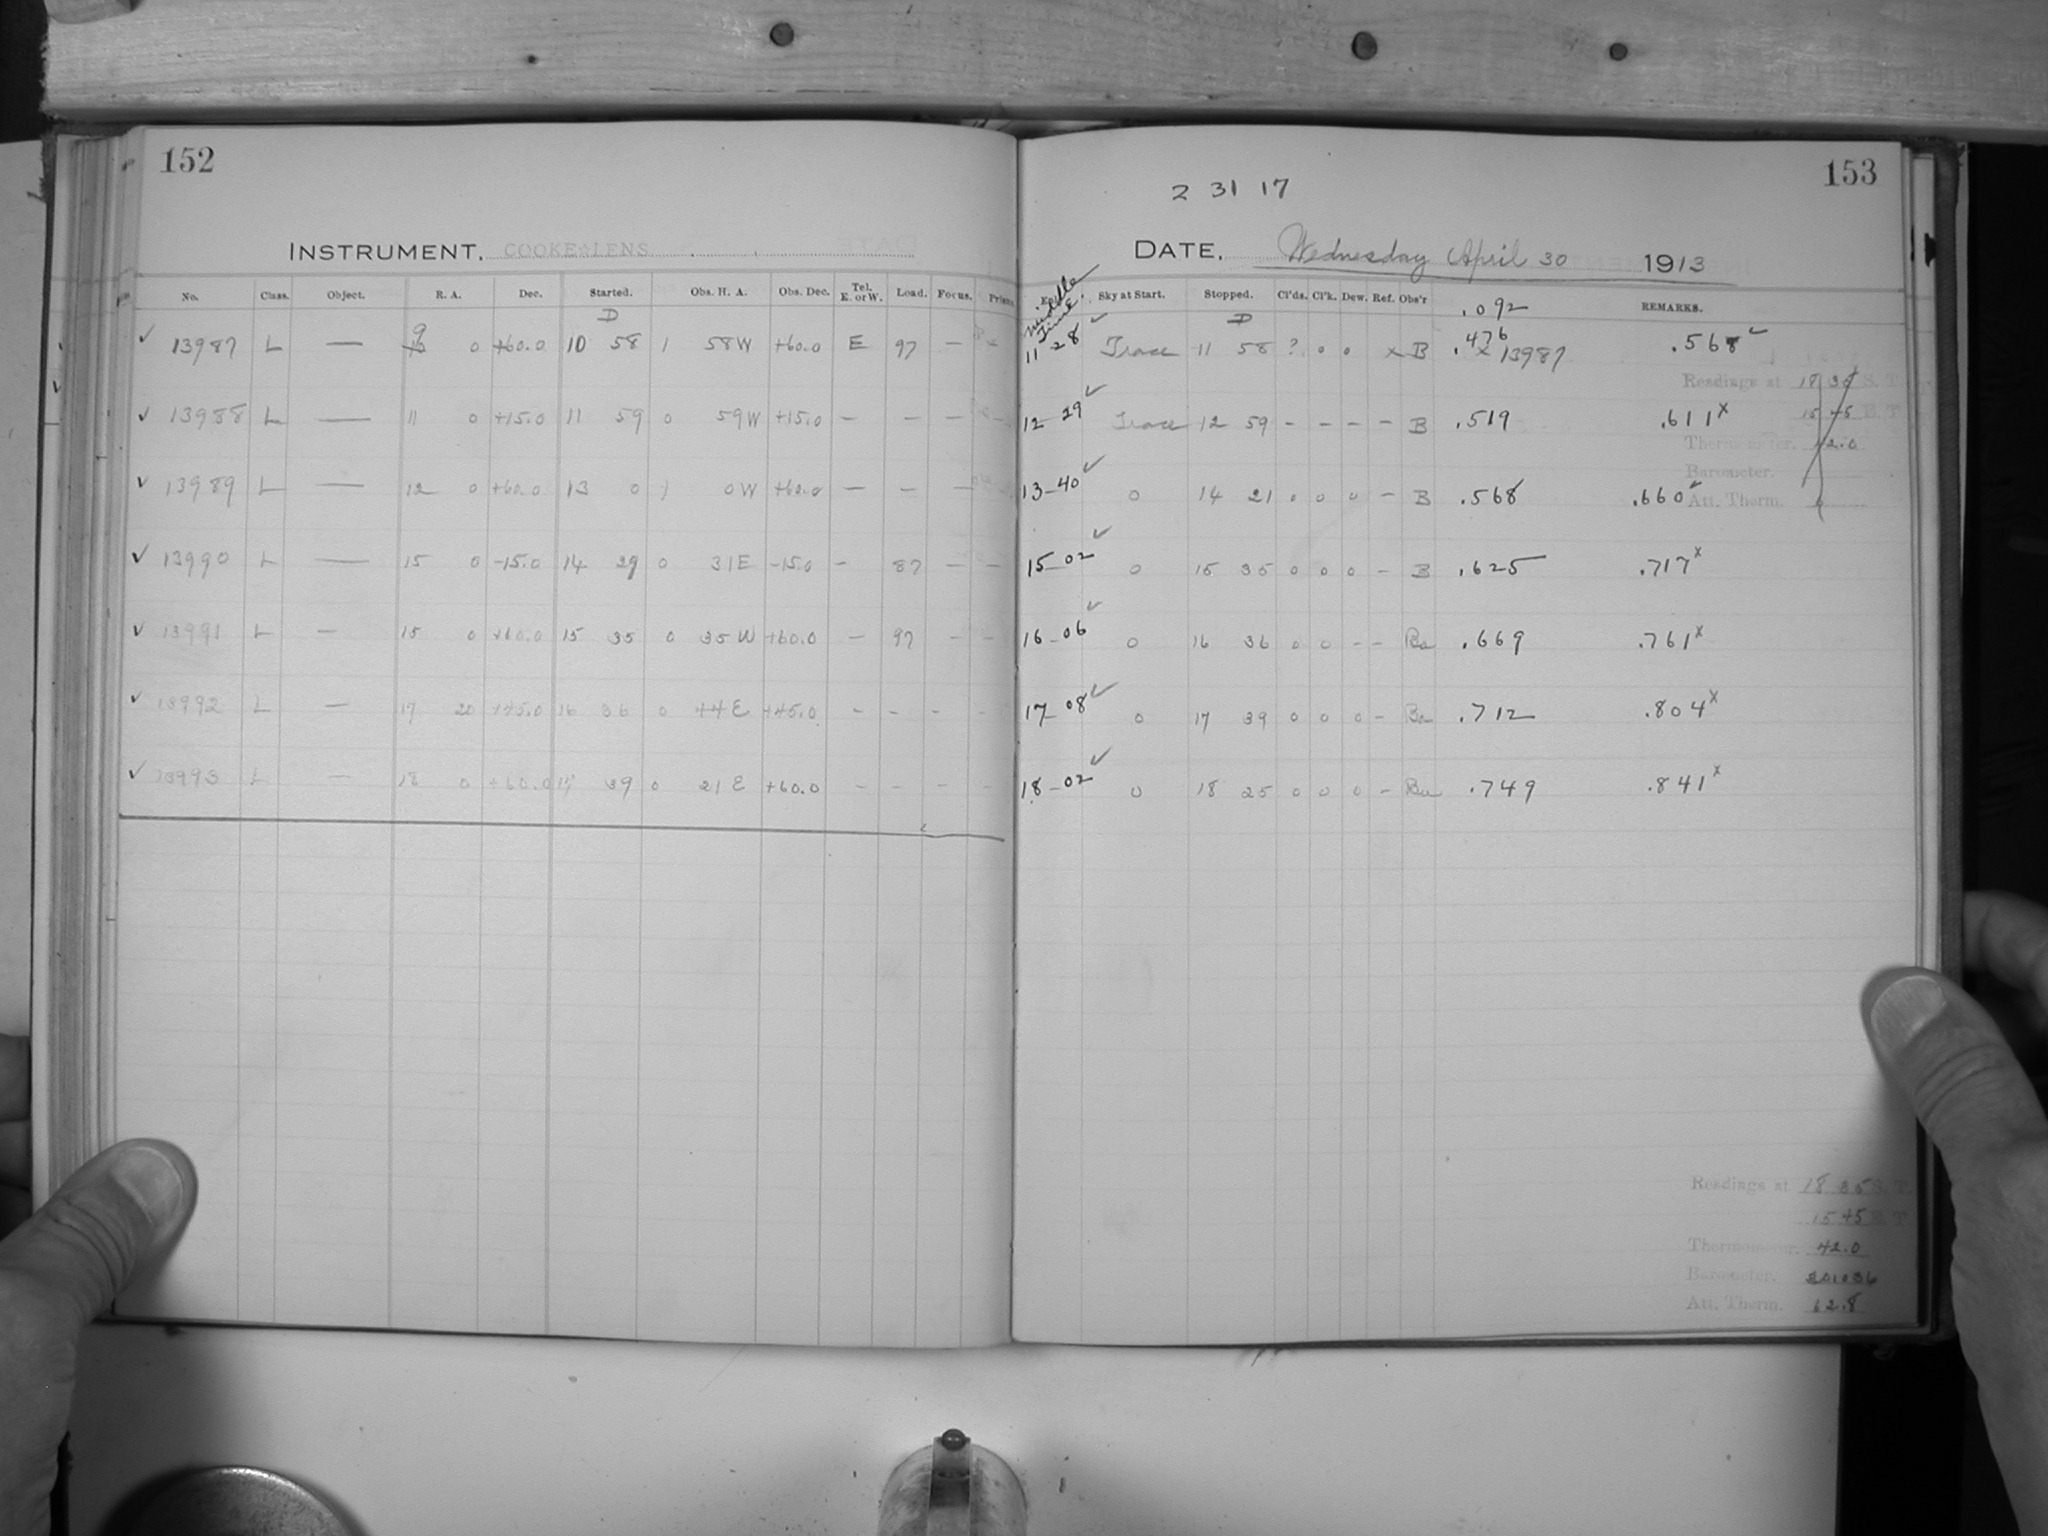 152
INSTRUMENT. COOKE LENS
No. Class. Object. R. A. Dec. Started. Obs. H. A. Obs. Dec. Tel. E. or W. Load. Focus.
D
✓ 13987 L — 9 0 +60.0 10 58 1 58W +60.0 E 97 —
✓ 13988 L — 11 0 +15.0 11 59 0 59W +15.0 — — — —
✓ 13989 L — 12 0 +60.0 13 0 1 0W +60.0 — — —
✓ 13990 L — 15 0 -15.0 14 29 0 31E -15.0 - 87 — —
✓ 13991 L — 15 0 +60.0 15 35 0 35W +60.0 — 97 - -
✓ 13992 L — 17 20 +45.0 16 36 0 44E +45.0 - - - -
✓ 13993 L — 18 0 +60.0 17 39 0 21E +60.0 - - - -
153
2 31 17
DATE. Wednesday April 30 1913
Middle Time. Sky at Start. Stopped. Cl'ds. Cl'k. Dew. Ref. Obs'r .092 REMARKS.
D
11-28 ✓ Trace 11 58 ? 0 0 x B .476 x 13987 .568 ✓
Readings at 18 35 S. T.
12-29 ✓ Trace 12 59 - - - - B .519 .611 x
15 45 E. T.
Thermometer. 42.0
Barometer.
13-40 ✓ 0 14 21 0 0 0 - B .568 .660 ✓
Att. Therm.
15-02 ✓ 0 15 35 0 0 0 - B .625 .717 x
16-06 ✓ 0 16 36 0 0 - - Ba .669 .761 x
17-08 ✓ 0 17 39 0 0 0 - Ba .712 .804 x
18-02 ✓ 0 18 25 0 0 0 - Ba .749 .841 x
Readings at 18 35 S. T.
15 45 E. T.
Thermometer. 42.0
Barometer.
Att. Therm. 62.8